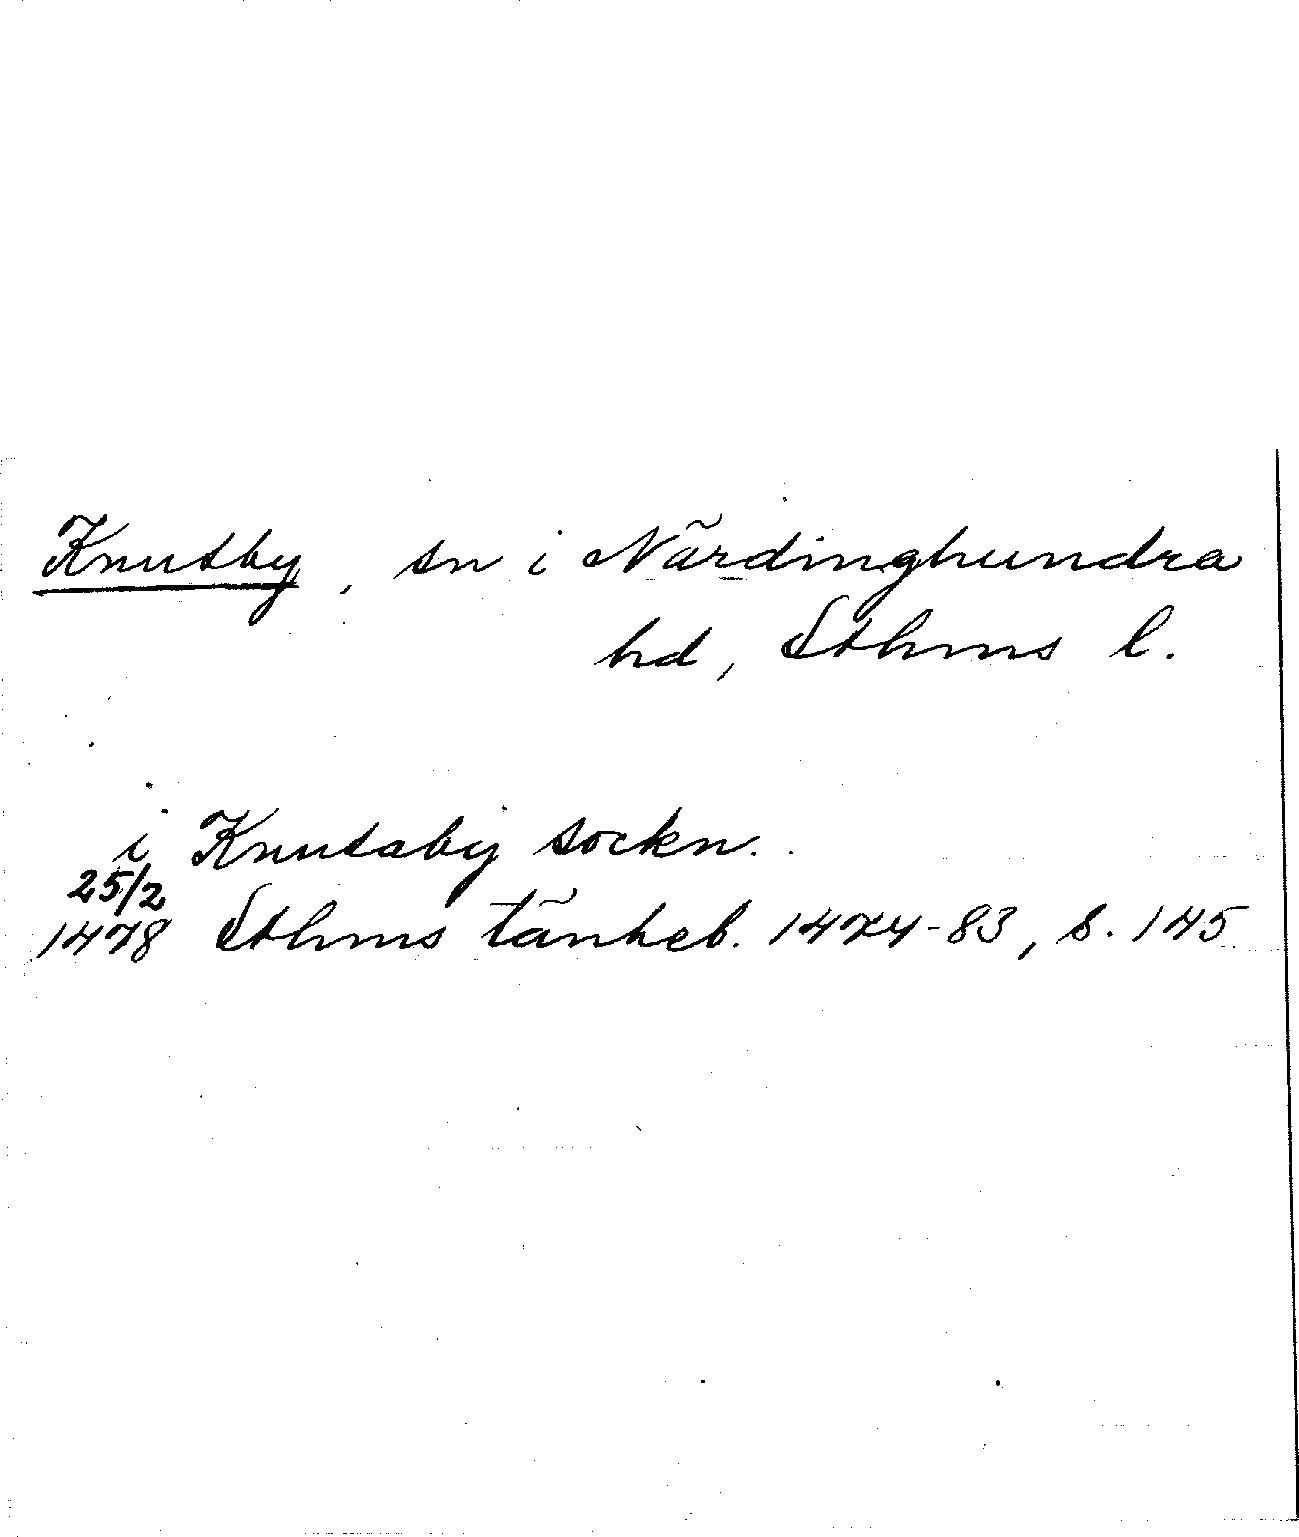 Knutby, sn i Närdinghundra
hd, Sthms l.
i Knutaby sockn.
25/2
1478 Sthms tänkeb. 1474-83, s. 145